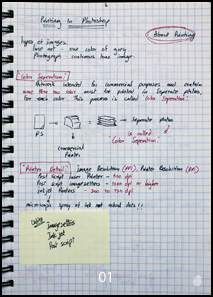 Printing In Photoshop
About Printing
types of images.
line art - one color of grey.
Photograph - continuous tone image
Color Seperation:
Artwork intended for commercial purposes and contain
more than one color must be printed on seperate plates,
for each color. This process is called "Color Seperation."
→ Seperate plates
P.S
is called
"Color Seperation."
Commercial
Printer
"Printer Detail" Image Resolution (PPI), Printer Resolution (DPI)
Post Script laser Printer - 600 dpi
Post script imagesetters - 1200 dpi or higher
Inkjet Printers - 300 to 720 dpi
microscopic spray of ink not actual dots!!
Imagesetters
Inkjet
Post script
01